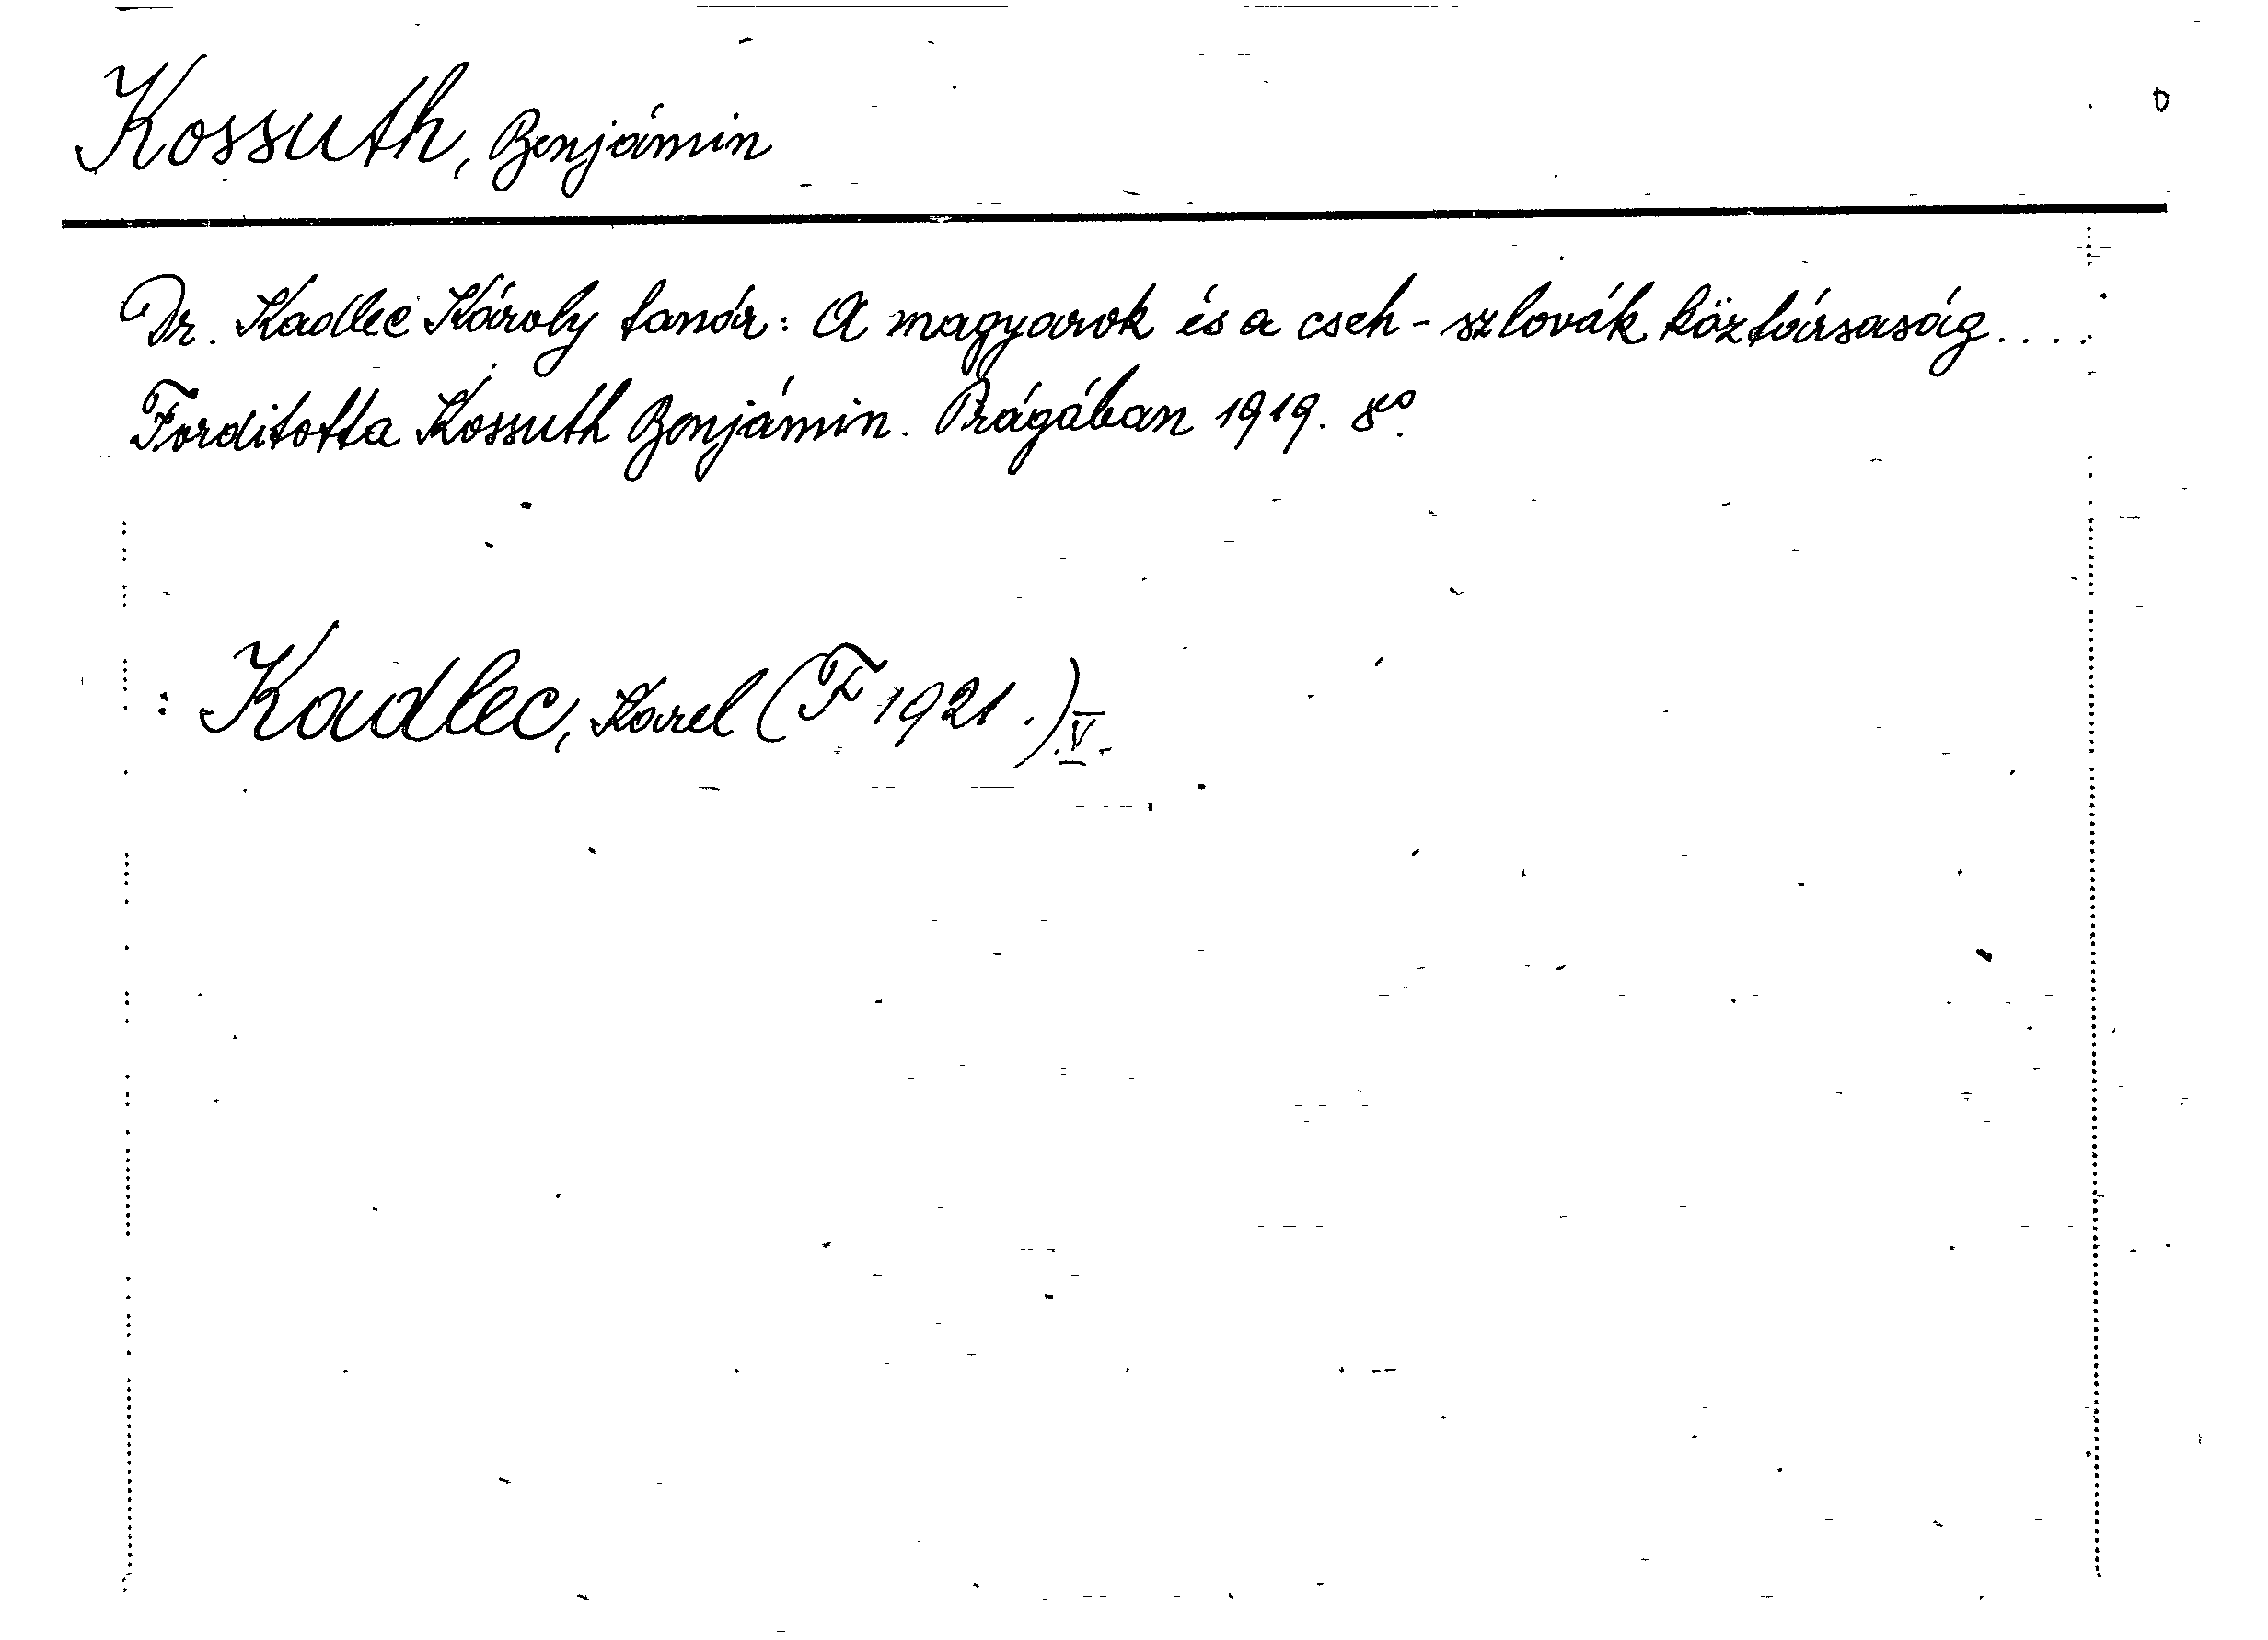 Kossuth, Benjámin
Dr. Kadlec Károly tanár: A magyarok és a cseh-szlovák köztársaság....
Forditotta Kossuth Benjámin. Prágában 1919. 8°.
: Kadlec, Karel (F 1921.) V.